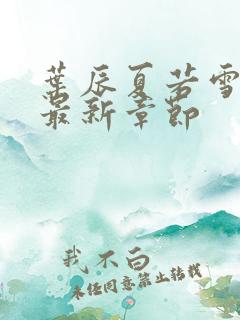 葉辰夏若雪
最新章節
我不白
未经同意禁止转载